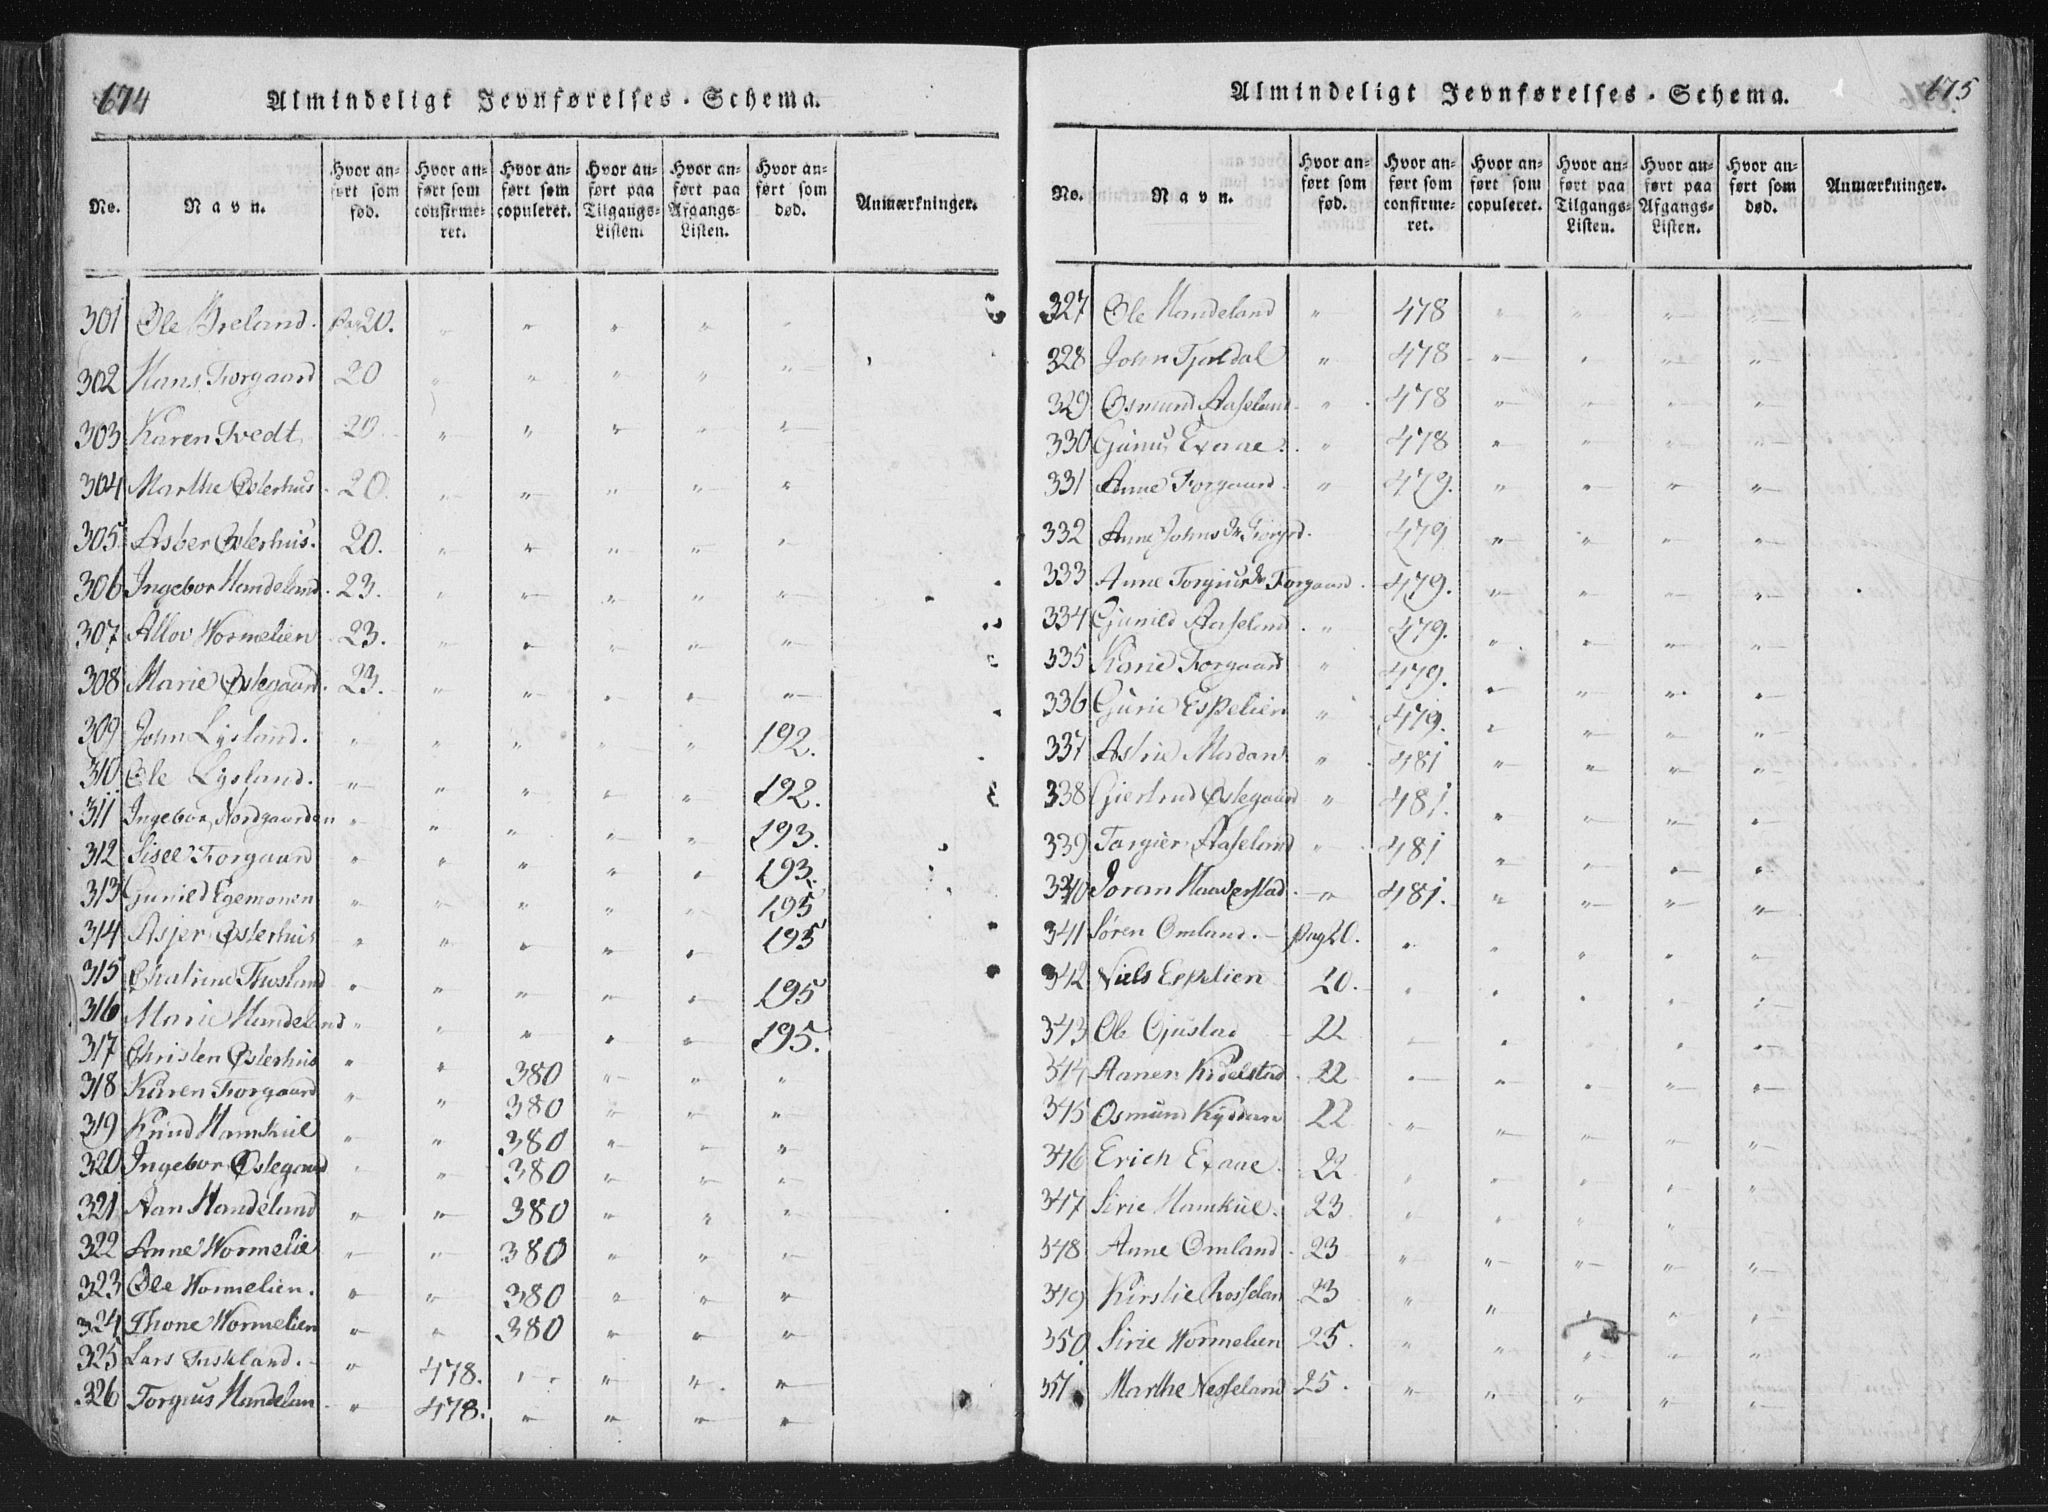 674
Almindeligt Jevnførelses-Schema.
No. Navn. Hvor anført som fød. Hvor anført som confirmeret. Hvor anført som copuleret. Hvor anført paa Tilgangs-Listen. Hvor anført paa Afgangs-Listen. Hvor anført som død. Anmærkninger.
301 Ole Breland. Pag 20. " " " " "
302 Hans Forgaard 20 " " " " "
303 Karen Tvedt 20. " " " " "
304 Marthe Østerhus. 20. " " " " "
305 Asber Østerhus. 20. " " " " "
306 Ingebor Handeland. 23. " " " " "
307 Allov Wormelien 23. " " " " "
308 Marie Østegaard. 23. " " " " "
309 John Lysland. " " " " " 192.
310 Ole Lysland. " " " " " 192.
311 Ingebor Nordgaarden " " " " " 193.
312 Sisel Forgaard " " " " " 193.
313 Gunild Egemonen " " " " " 195
314 Asjer Østerhus " " " " " 195
315 Chatrine " " " " " 195
316 Marie Handeland " " " " " 195.
317 Christen Østerhus " " 380 " " "
318 Karen Forgaard " " 380 " " "
319 Knud Hamkiil " " 380 " " "
320 Ingebor Østegaard " " 380 " " "
321 Aan Handeland " " 380 " " "
322 Anne Wormelie " " 380 " " "
323 Ole Wormelien. " " 380 " " "
324 Thone Wormelien " " 380 " " "
325 Lars " 478. " " " "
326 Torgius Handelan " 478. " " " "
175
Almindeligt Jevnførelses-Schema.
No. Navn. Hvor anført som fød. Hvor anført som confirmeret. Hvor anført som copuleret. Hvor anført paa Tilgangs-Listen. Hvor anført paa Afgangs-Listen. Hvor anført som død. Anmærkninger.
327 Ole Handeland " 478 " " " "
328 John Tjoldal " 478 " " " "
329 Osmund Aaseland " 478 " " " "
330 Gunus Exaae. " 478 " " " "
331 Anne Forgaard " 479. " " " "
332 Anne Johns Dr Forgrd. 479 " " " "
333 Anne Torgius Dr Forgaard. 479. " " " "
334 Gunild Aaseland. " 479. " " " "
335 Karie Forgaard " 479. " " " "
336 Gurie Espelien " 479. " " " "
337 Astrie " 481 " " " "
338 Giertrud Østegaard " 481. " " " "
339 Targier Aaseland " 481 " " " "
340 Joran Haaverstad. " 481. " " " "
341 Søren Omland. Pag 20. " " " " "
342 Niels Espelien 20. " " " " "
343 Ole Gjustad 22 " " " " "
344 Aanen Kidelstad. 22 " " " " "
345 Osmund 22 " " " " "
346 Erich Exaae. 22 " " " " "
347 Sirie Hamkiil. 23 " " " " "
348 Anne Omland. 23 " " " " "
349 Kirstie Rosselan 23 " " " " "
350. Sirie Wormelien 25. " " " " "
351 Marthe Nesseland 25. " " " " "